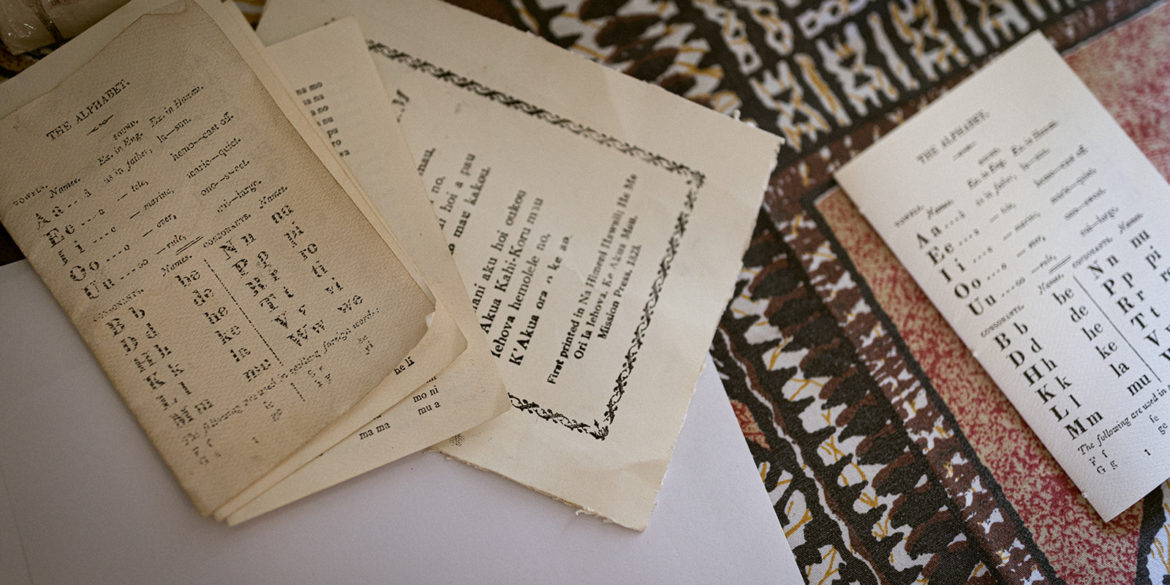 THE ALPHABET.
VOWELS.
SOUND.
Names.
Ex. in Eng.
Ex. in Hawaii.
A a . . . â
as in father,
la—sun.
E e . . . a
— tele,
hemo—cast off.
I i . . . e
— marine,
marie—quiet.
O o . . . o
— over,
ono—sweet.
U u . . . oo
— rule,
nui—large.
CONSONANTS.
Names.
CONSONANTS.
Names.
B b
be
N n
nu
D d
de
P p
pi
H h
he
R r
ro
K k
ke
T t
ti
L l
la
V v
vi
M m
mu
W w
we
The following are used in spelling foreign words:
F f
fe
G g
ge
na mo
he li
mo ni
mu a
ma ma
no,
hoi a pau
kakou.
aku hoi oukou
Akua Kahi-Koru mau
Iehova hemolele no,
K'Akua ora
ke ao.
First printed in Na Himeni Hawaii; He Me
Ori Ia Iehova, Ke Akua Mau,
Mission Press, 1823.
THE ALPHABET.
VOWELS.
SOUND.
Names.
Ex. in Eng.
Ex. in Hawaii.
A a
as in father,
la—sun.
E e
— tele,
hemo—cast off.
I i . . . e
— marine,
marie—quiet.
O o . . . o
— over,
ono—sweet.
U u . . . oo
— rule,
nui—large.
CONSONANTS.
Names.
CONSONANTS.
Names.
B b
be
N n
nu
D d
de
P p
pi
H h
he
R r
K k
ke
T t
L l
la
V
M m
mu
The following are used in
F f
fe
G g
ge